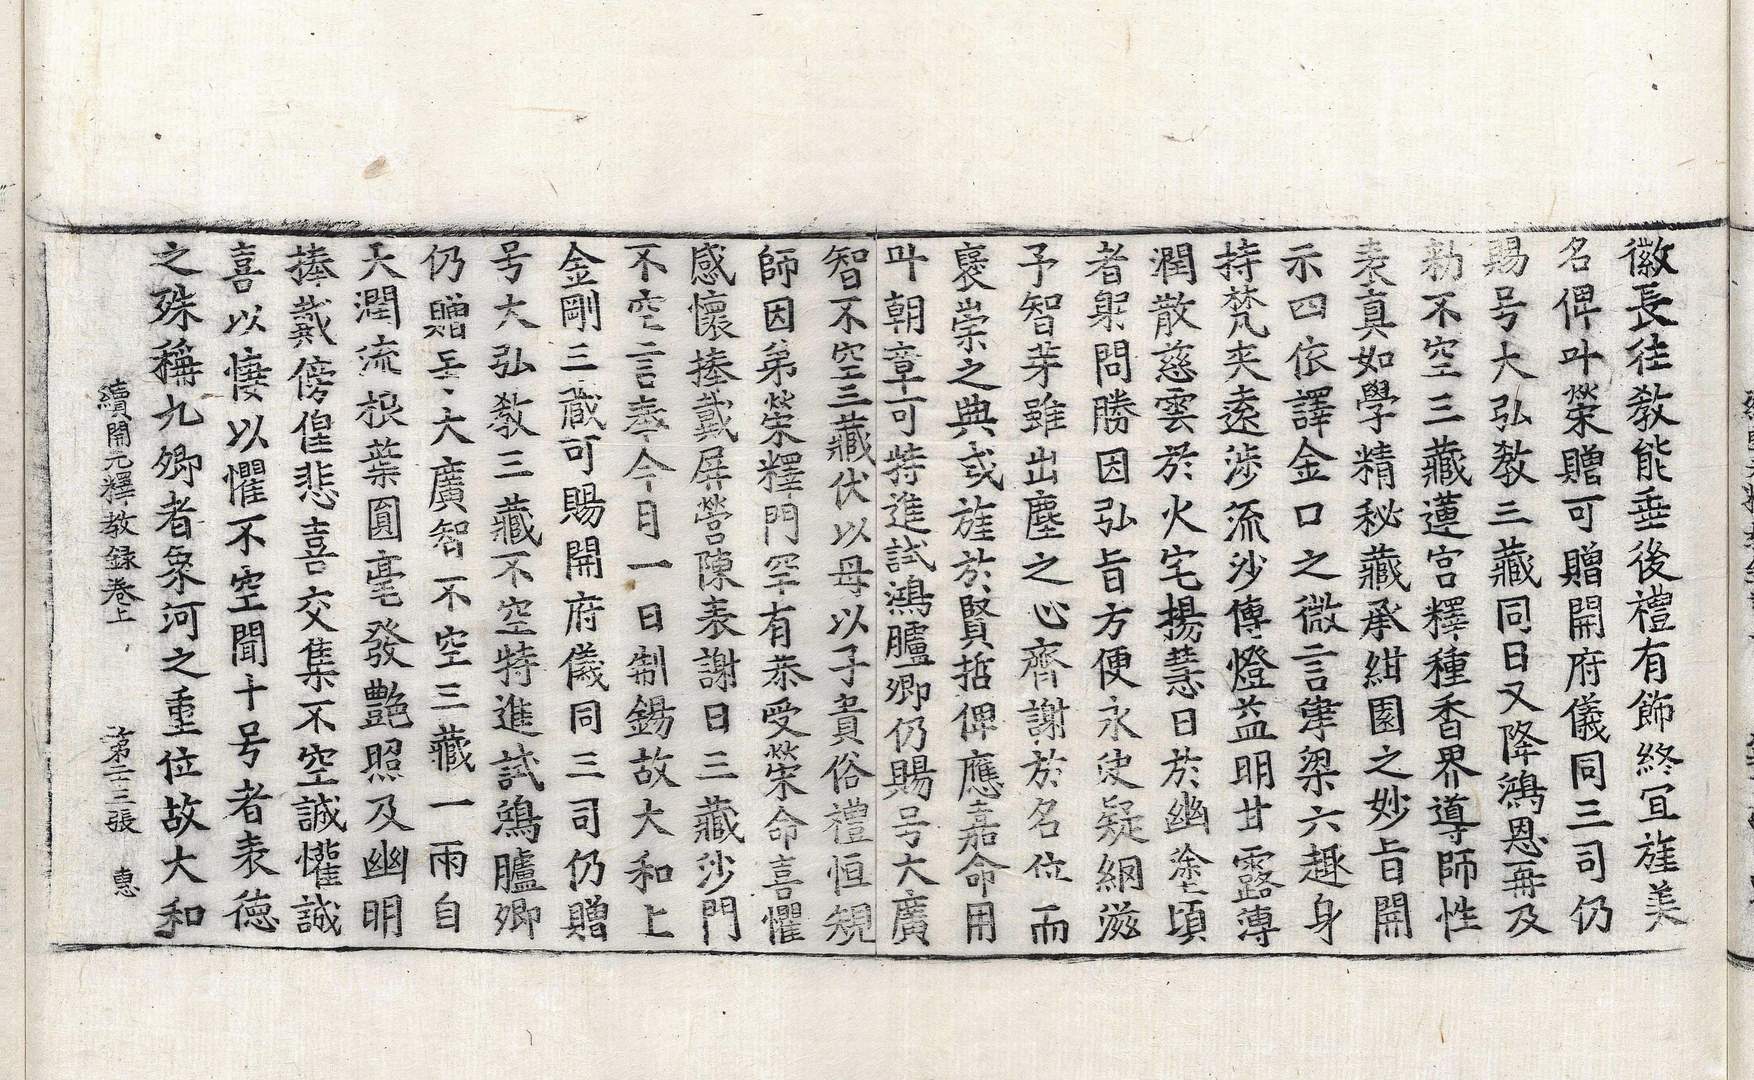 徽長往教能垂後禮有飾終冝旌美
名俾叶榮贈可贈開府儀同三司仍
賜号大弘教三藏同日又降鴻恩再及
勑不空三藏薳宫釋種香界導師性
表真如學精秘藏承紺園之妙旨開
示四依譯金口之微言津梁六趣身
持梵夹遠涉流沙傳燈益明甘露溥
潤散慈雲於火宅揚慧日於幽塗頃
者躬問勝因弘旨方便永使疑網滋
予智芽雖出塵之心齊謝於名位而
襃崇之典或旌於賢哲俾應嘉命用
叶朝章可特進試鴻臚卿仍賜号大廣
智不空三藏伏以母以子貴俗禮恒規
師因弟榮釋門罕有恭受榮命喜懼
感懷捧戴屏營陳表謝日三藏沙門
不空言奉今日一日制錫故大和上
金剛三藏可賜開府儀同三司仍贈
号大弘教三藏不空特進試鴻臚卿
仍贈号大廣智不空三藏一雨自
天潤流根葉圓毫發艷照及幽明
捧戴傍偟悲喜交集不空誠懽誠
喜以悽以懼不空聞十号者表德
之殊稱九卿者象河之重位故大和
續開元釋教録卷上 第二十三張 惠